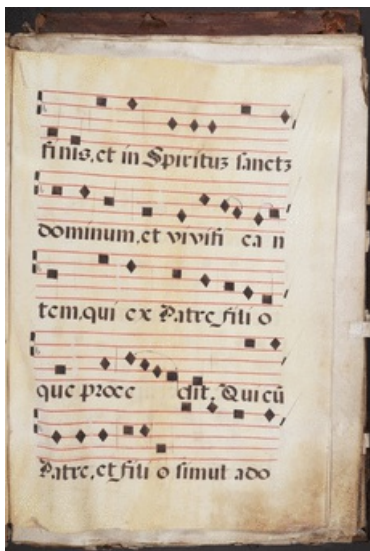 finis, et in Spirituz sanctz
dominum, et vivifi ca n
tem, qui ex Patre fili o
que proce dit. Qui cū
Patre, et fili o simul ado